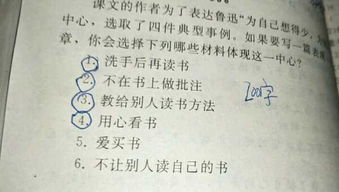 课文的作者为了表达鲁迅“为自己想得少，为
中心，选取了四件典型事例。如果要写一篇
章，你会选择下列哪些材料体现这一中心？
1. 洗手后再读书
2. 不在书上做批注
3. 教给别人读书方法
200字
4. 用心看书
5. 爱买书
6. 不让别人读自己的书